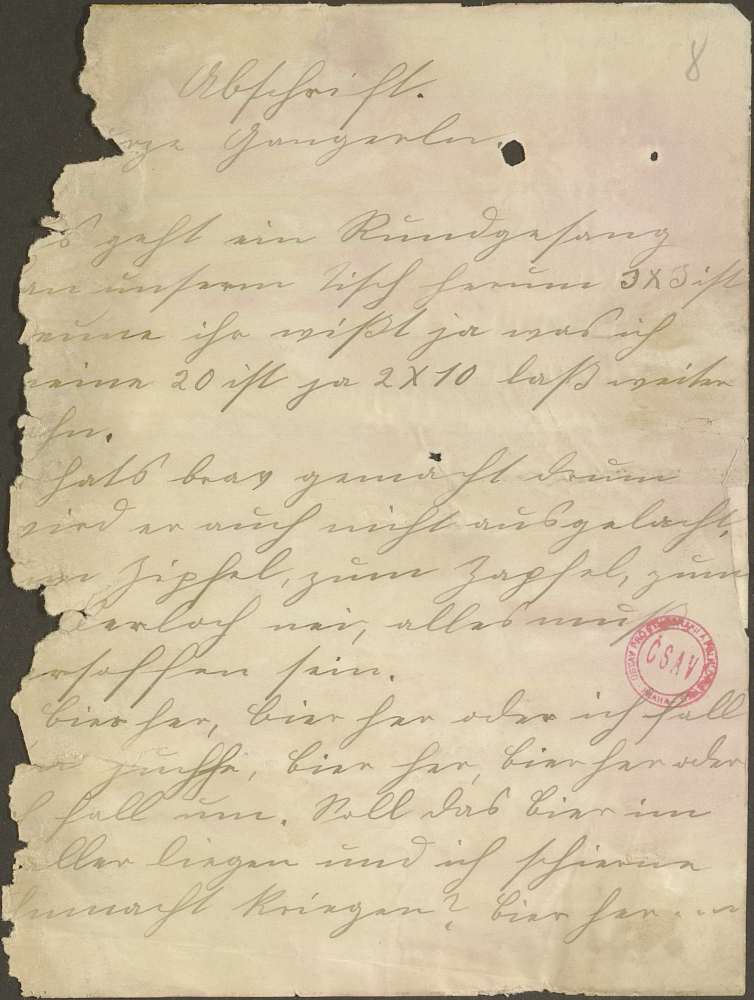 8
Abschrift.
rze Gangerln.
s geht ein Rundgesang
an unserm Tisch herum 3X3 ist
eune ihr wißt ja was ich
eine 20 ist ja 2X10 laß weiter
hn.
hats brav gemacht drum
ird er auch nicht ausgelacht,
m Zipfel, zum Zapfel, zum
erloch nei, alles muß
ersoffen sein.
Bier her, Bier her oder ich fall
m juchhe, bier her, bier her oder
h fall um. Soll das Bier im
eller liegen und ich hier
nmacht kriegen? bier her
ČSAV